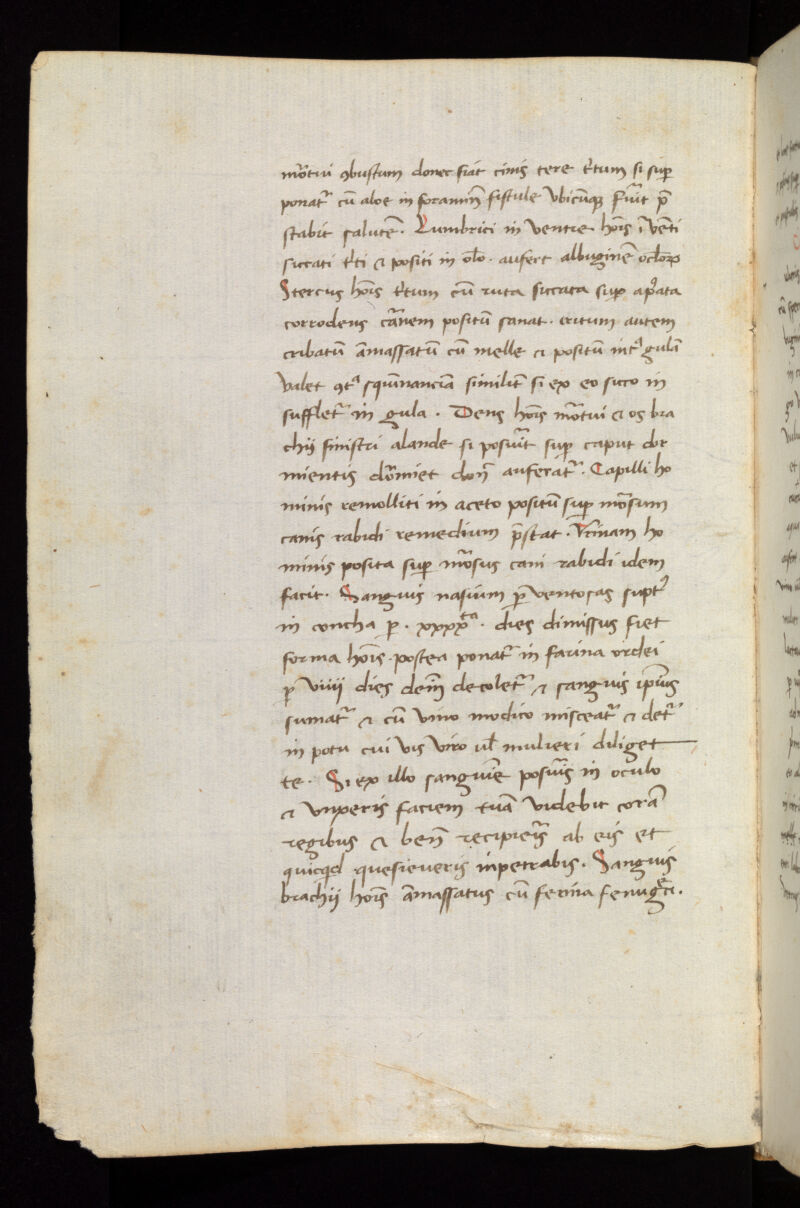 mõtui 9bustum donec fiat cinis tere t̃itum si sup̱
ponat᷑ cũ aloe in foraminẽ fistule vbicũq3 fũit p̃
stabit salutẽ. Lumbrici in ventre hoĩs ĩ vẽti
siccati t̃iti & positi in ol̃o. aufert albuginẽ ocl̃oꝝ
Stercus hoĩs t̃itum cũ ruta siccata sup̱ ap̃ata
corrodens cãnem positũ sanat. tritum autem
cribatũ ãmassatũ cũ melle & positũ int᷑ gulã
valet 9tᵃ squinanciã similit̃ si ex eo sicco in
sufflet᷑ in gula. Dens hoĩs mõtui & os bra
chij sinistri alaude si posuĩt sup̱ caput dor
mientis dõmiet don̄ auferat᷑. Capilli ho
minis remolliti in aceto positũ sup̱ mõsum
canis rabidi remedium p̃stat. Vrinam ho
minis posita sup̱ mõsus cani rabidi idem
facit. Sanguis nasium ꝑ ventosas supt᷑
in concha ꝑ. xxxxᵗᵃ. dies dimissus fiet
forma hoĩs. postea ponat᷑ in farina ordei
ꝑ viiij dies dem̃ decolet᷑ & sanguis ip̃ius
sumat᷑ & cũ vino modico misceat᷑ & det᷑
in potu cui vis viro ul̃ mulieri diliget
te. Si ex illo sanguĩe posuĩs in oculo
& vnxeris faciem tuã videbit corã
regibus & ben̄ recipieĩs ab eis et
quicq̃d quesieveris inpetrabis. Sanguis
brachij hoĩs ãmassatus cũ ferina fenug̃ci.